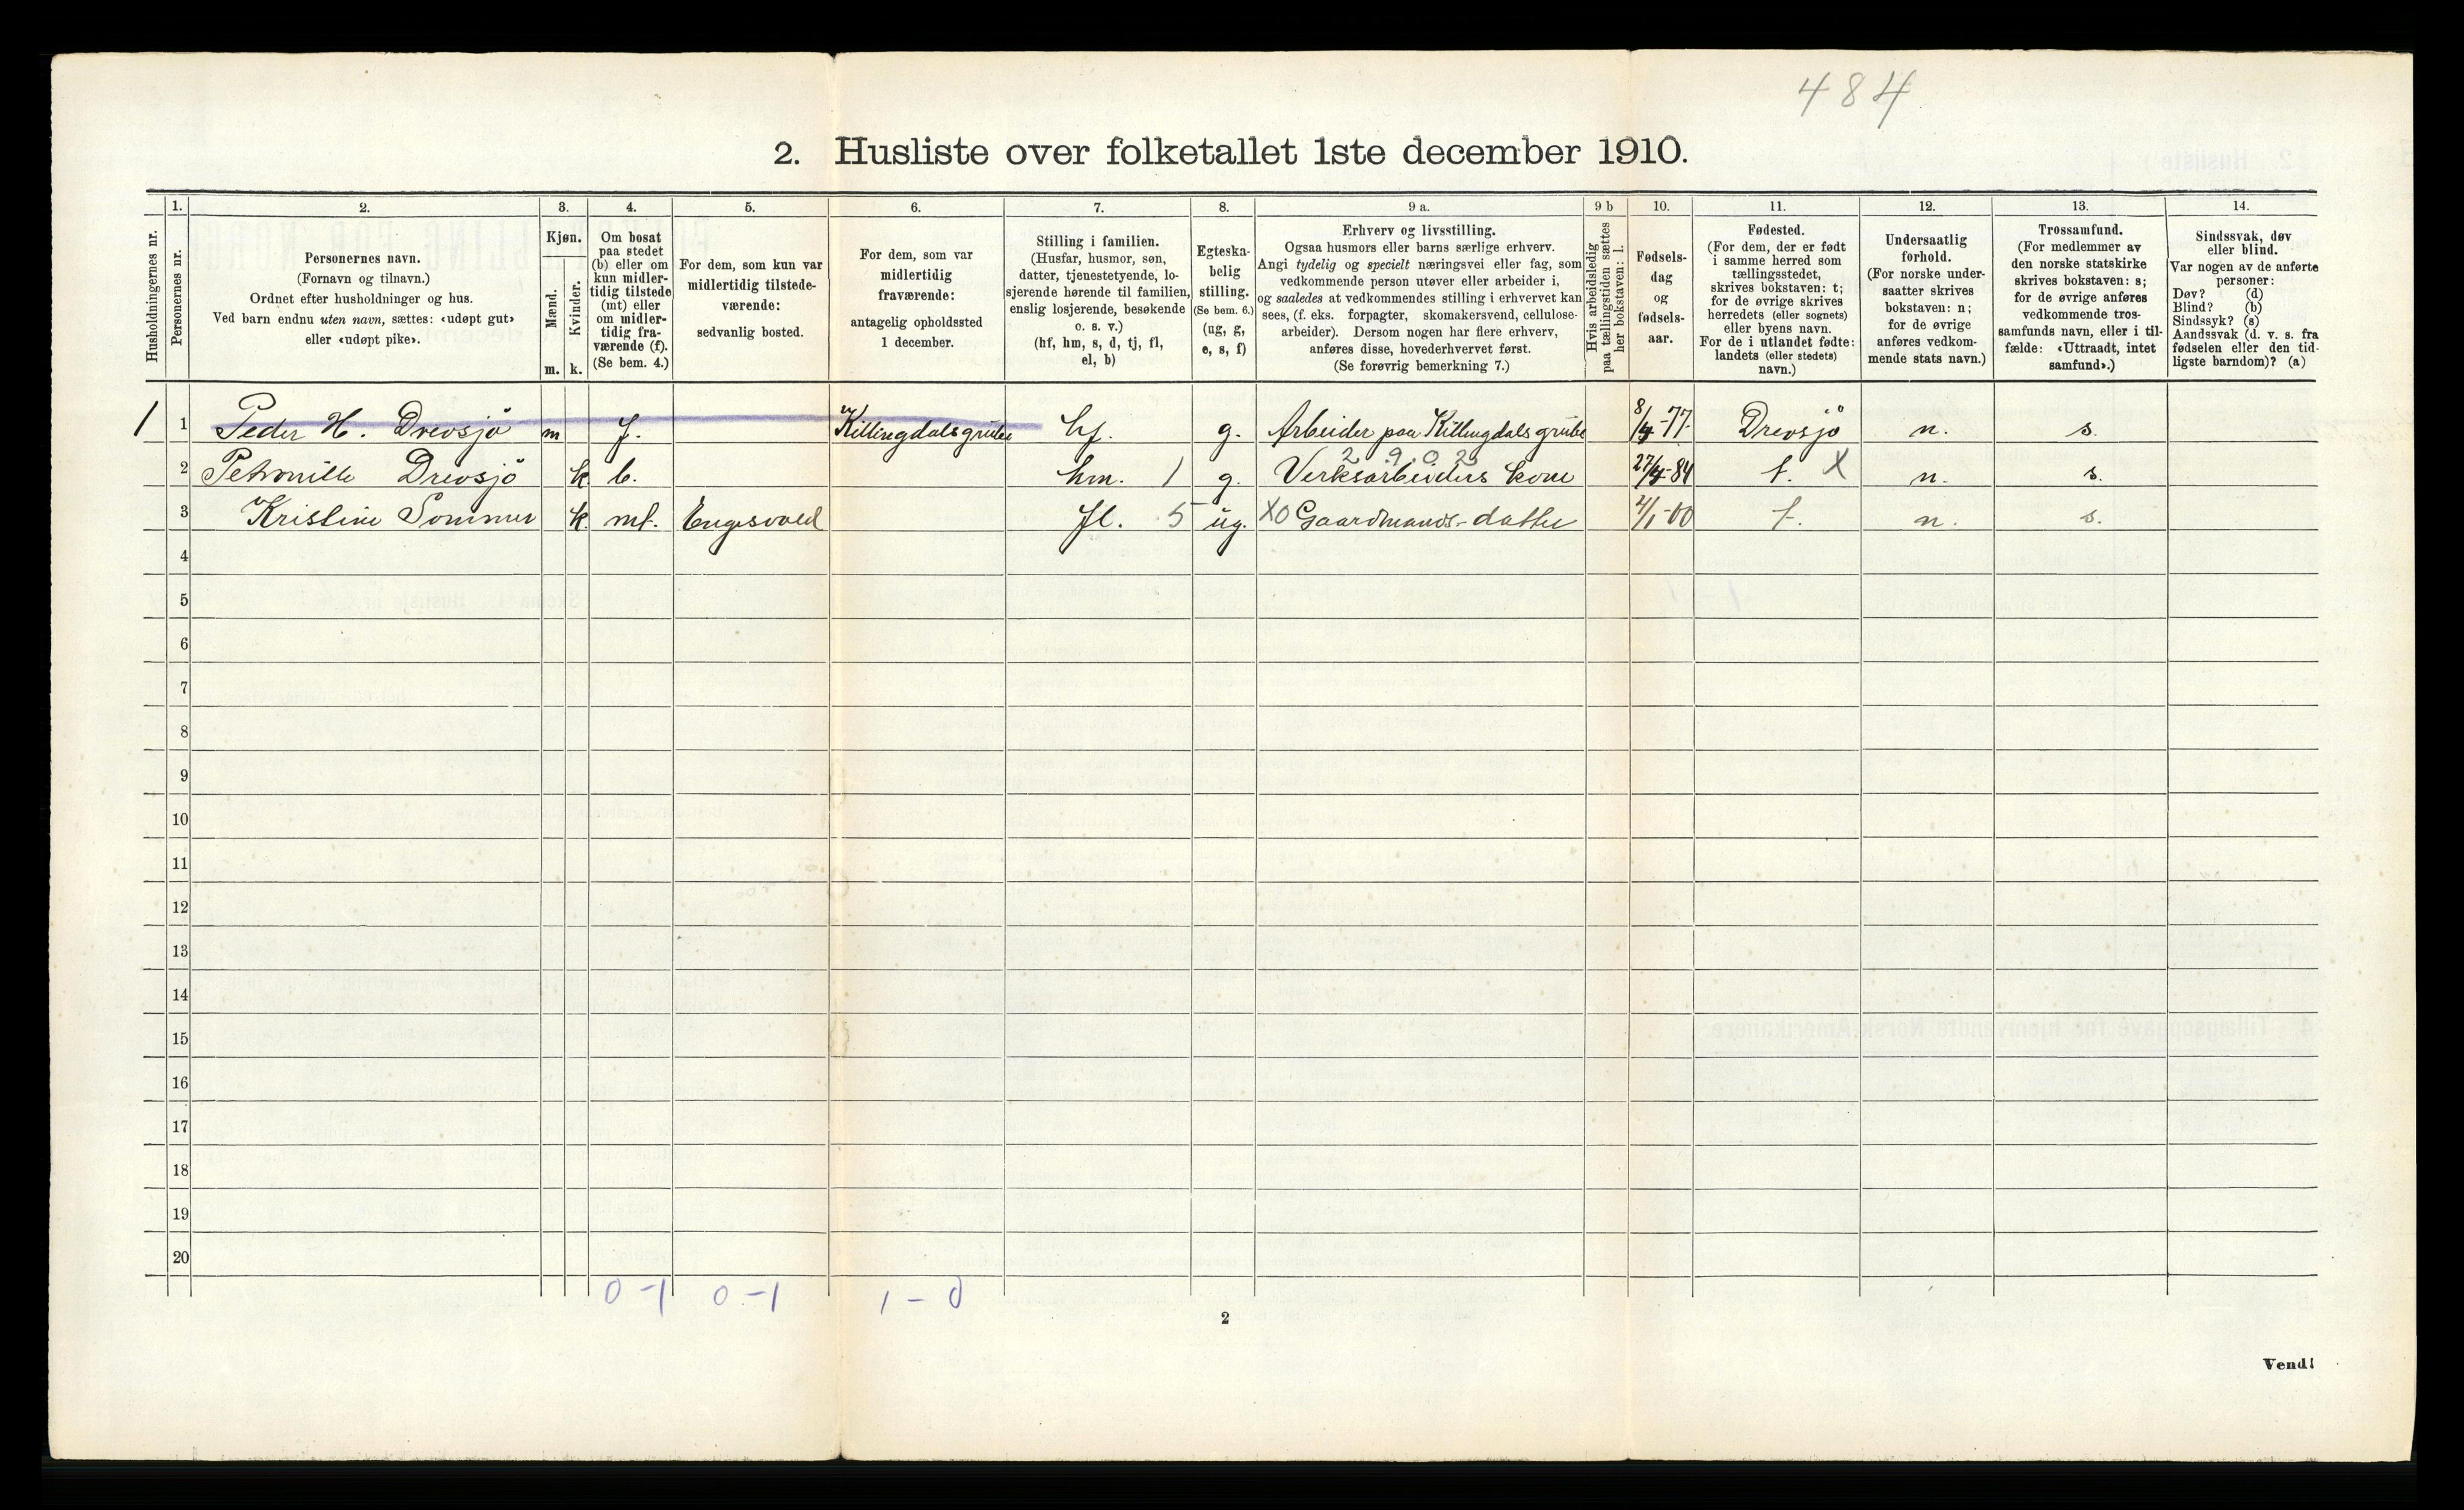 484
2. Husliste over folketallet 1ste december 1910.
Husholdningernes nr.
1. Personernes nr.
2. Personernes navn.
(Fornavn og tilnavn.)
Ordnet efter husholdninger og hus.
Ved barn endnu uten navn, sættes: «udøpt gut»
eller «udøpt pike».
3. Kjøn.
Mænd. Kvinder.
m. k.
4. Om bosat
paa stedet
(b) eller om
kun midler-
tidig tilstede
(mt) eller
om midler-
tidig fra-
værende (f).
(Se bem. 4.)
5. For dem, som kun var
midlertidig tilstede-
værende:
sedvanlig bosted.
6. For dem, som var
midlertidig
fraværende:
antagelig opholdssted
1 december.
7. Stilling i familien.
(Husfar, husmor, søn,
datter, tjenestetyende, lo-
sjerende hørende til familien,
enslig losjerende, besøkende
o. s. v.)
(hf, hm, s, d, tj, fl,
el, b)
8. Egteska-
belig
stilling.
(Se bem. 6.)
(ug, g,
e, s, f)
9 a. Erhverv og livsstilling.
Ogsaa husmors eller barns særlige erhverv.
Angi tydelig og specielt næringsvei eller fag, som
vedkommende person utøver eller arbeider i,
og saaledes at vedkommendes stilling i erhvervet kan
sees, (f. eks. forpagter, skomakersvend, cellulose-
arbeider). Dersom nogen har flere erhverv,
anføres disse, hovederhvervet først.
(Se forøvrig bemerkning 7.)
9 b Hvis arbeidsledig
paa tællingstiden sættes
her bokstaven: l.
10. Fødsels-
dag
og
fødsels-
aar.
11. Fødested.
(For dem, der er født
i samme herred som
tællingsstedet,
skrives bokstaven: t;
for de øvrige skrives
herredets (eller sognets)
eller byens navn.
For de i utlandet fødte:
landets (eller stedets)
navn.)
12. Undersaatlig
forhold.
(For norske under-
saatter skrives
bokstaven: n;
for de øvrige
anføres vedkom-
mende stats navn.)
13. Trossamfund.
(For medlemmer av
den norske statskirke
skrives bokstaven: s;
for de øvrige anføres
vedkommende tros-
samfunds navn, eller i til-
fælde: «Uttraadt, intet
samfund».)
14. Sindssvak, døv
eller blind.
Var nogen av de anførte
personer:
Døv? (d)
Blind? (b)
Sindssyk? (s)
Aandssvak (d. v. s. fra
fødselen eller den tid-
ligste barndom)? (a)
1 1 Peder H. Drevsjö m f. Killingdalsgrube hf. g. Arbeider paa Killingdals grube 8/4-77 Drevsjö n. s.
2 9 0 2
2 Petronille Drevsjö k b. hm. 1 g. Verksarbeiders kone 27/4-84 t. X n. s.
3 Kristine Sommer k mt. Engesvold fl. 5 ug. X0 Gaardmands-datter n. s.
4
5
6
7
8
9
10
11
12
13
14
15
16
17
18
19
20
0-1 0-1 1-0
2
Vend!